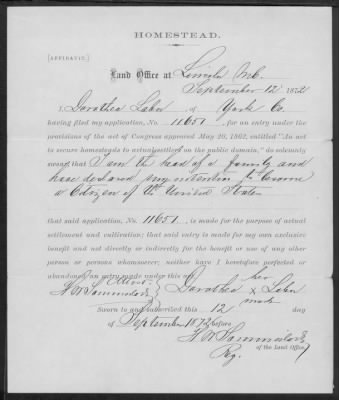 HOMESTEAD.
[AFFIDAVIT.]
Land Office at Lincoln Neb.
September 12 1872
I, Dorothea Lahn of York Co.
having filed my application, No. 11651, for an entry under the
provisions of the act of Congress approved May 20, 1862, entitled "An act
to secure homesteads to actual settlers on the public domain," do solemnly
swear that I am the head of a family and
have declared my intention to become
a Citizen of the United States
that said application, No. 11651, is made for the purpose of actual
settlement and cultivation; that said entry is made for my own exclusive
benefit and not directly or indirectly for the benefit or use of any other
person or persons whomsoever; neither have I heretofore perfected or
abandoned an entry made under this act.
Attest her
Dorothea x Lahn
mark
Sworn to and subscribed this 12 day
of September 1872 before
Reg. of the Land Office